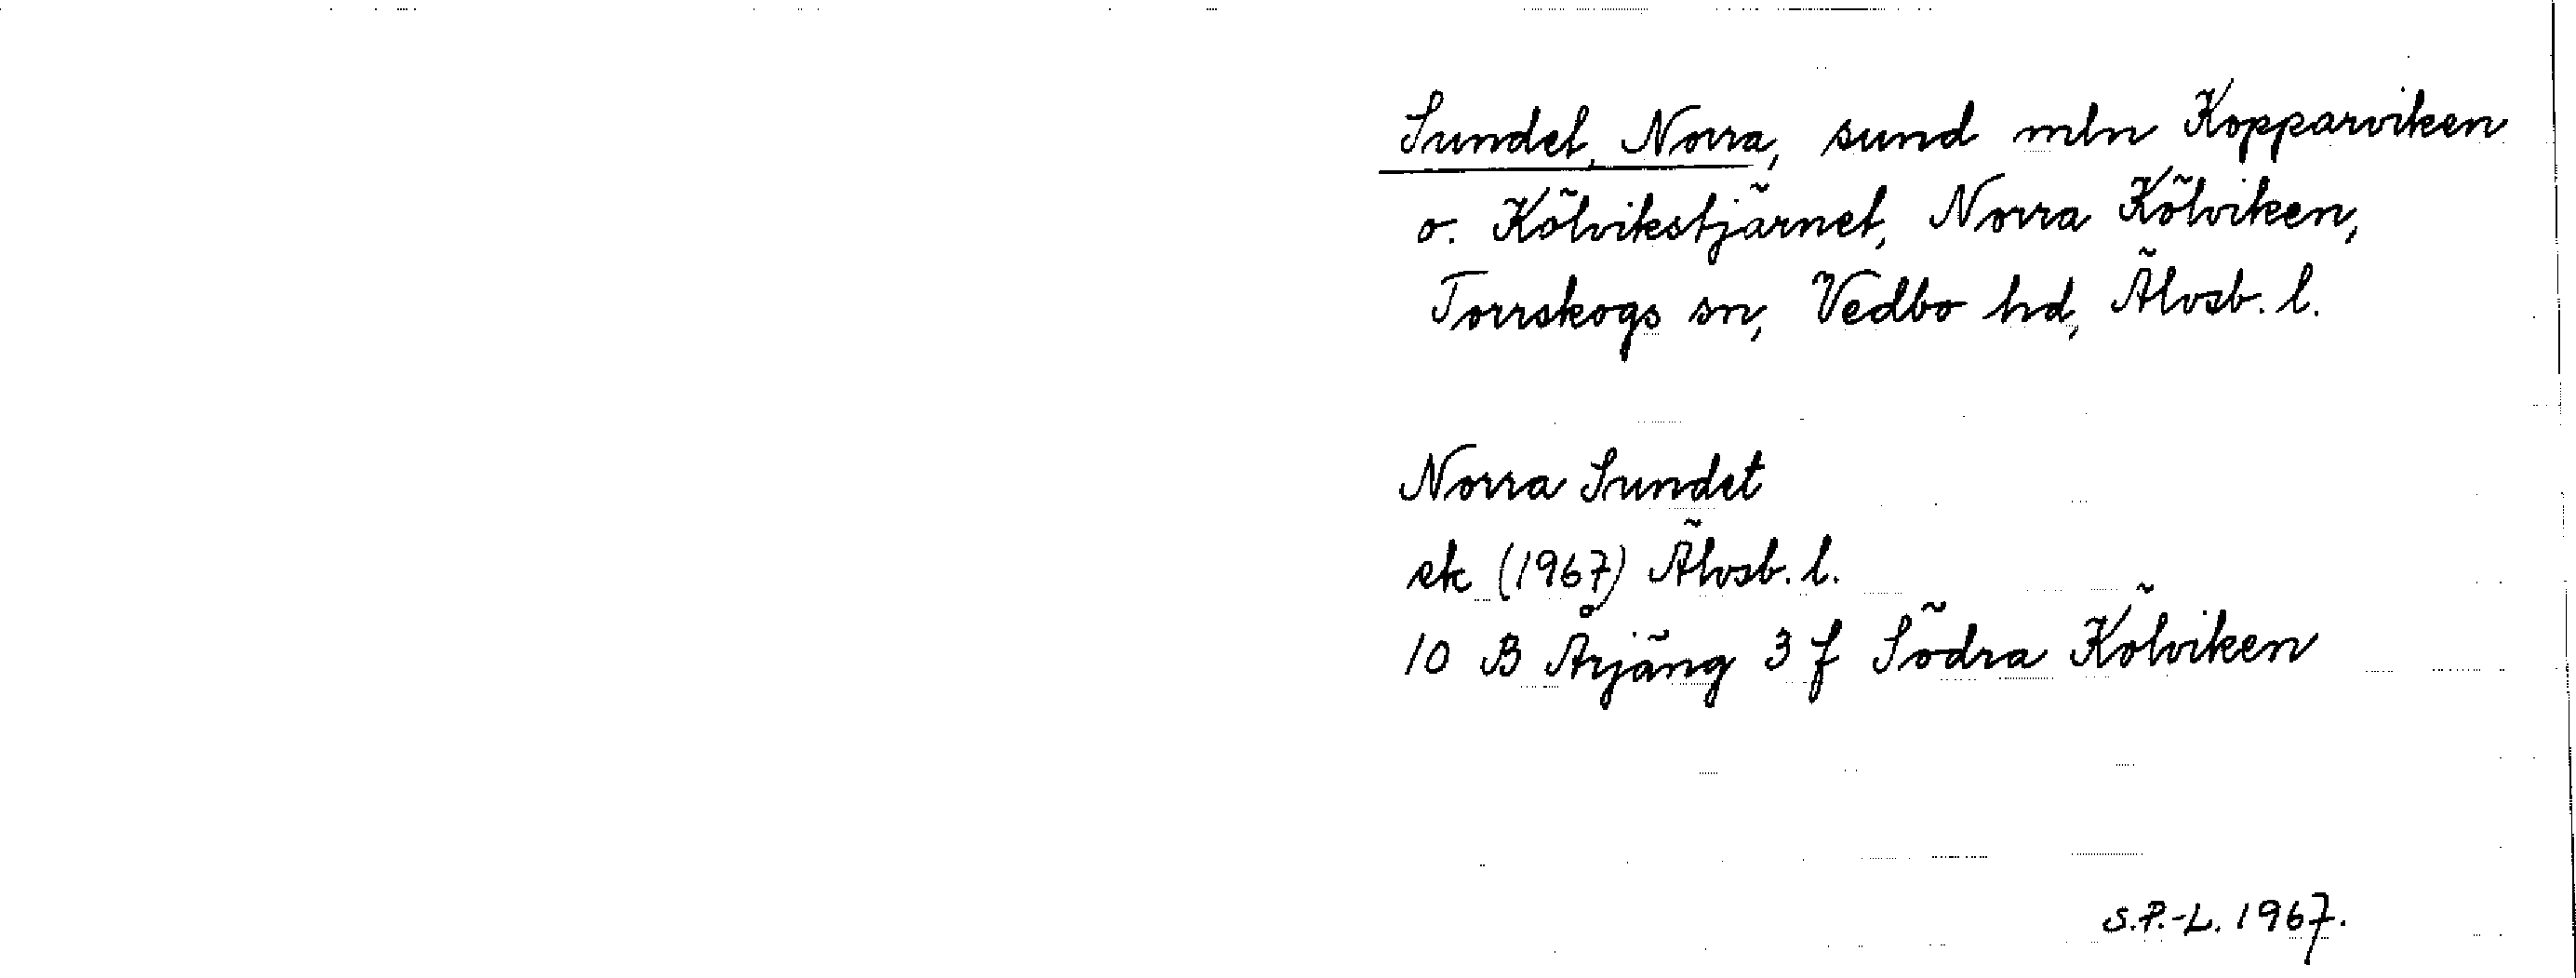 Sundet, Norra, sund mln Kopparviken
o. Kölvikstjärnet, Norra Kölviken,
Torrskogs sn, Vedbo hd, Älvsb. l.
Norra Sundet
ek (1967) Älvsb. l.
10 B Årjäng 3 f Södra Kölviken
S.P.-L. 1967.